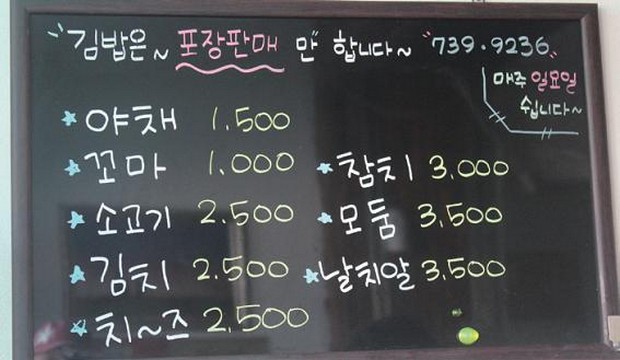 "김밥은~ 포장판매 만 합니다~ "739.9236"
매주 일요일
쉽니다~
★야채 1.500
★꼬마 1.000
★참치 3.000
★소고기 2.500
★모둠 3.500
★김치 2.500
★날치알 3.500
★치~즈 2.500